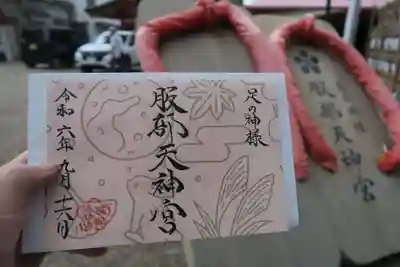 足の神様
服部天神宮
令和六年九月十六日
服部天神宮